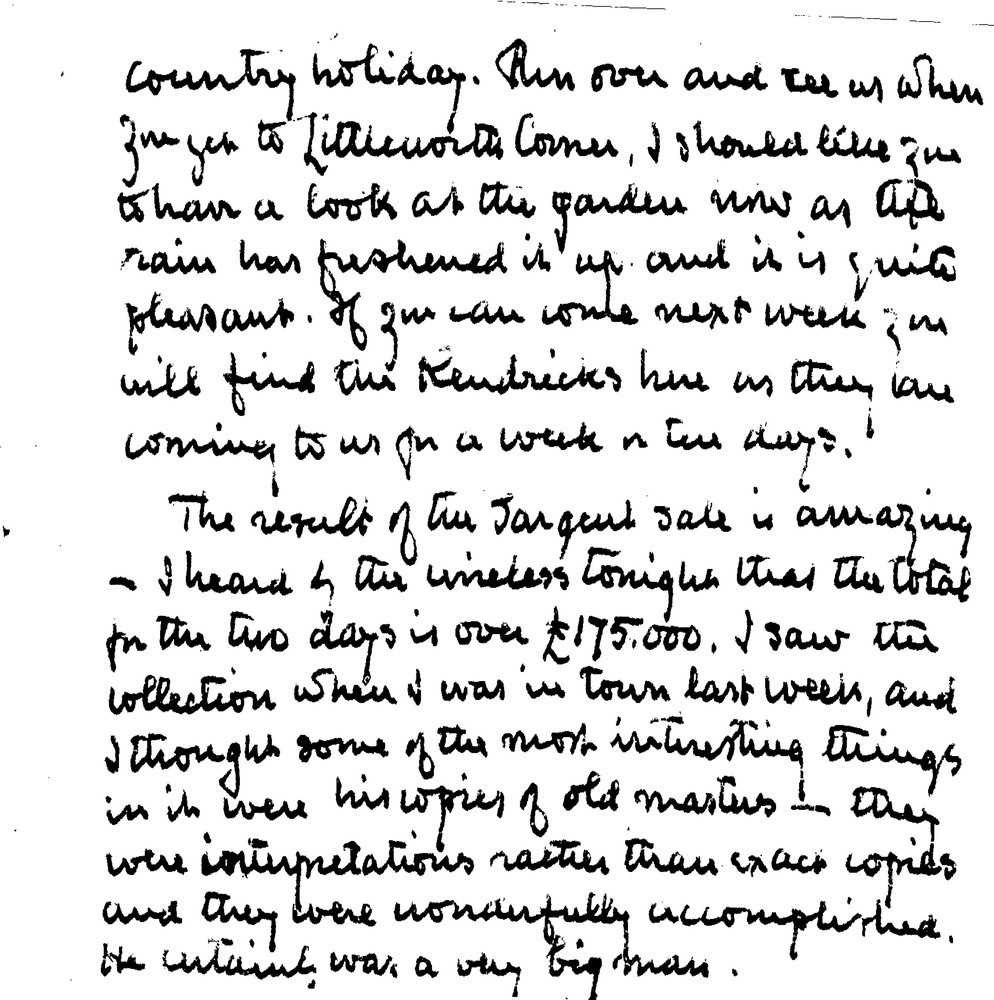 country holiday. Run over and see us when
you get to Littleworth Corner, I should like you
to have a look at the garden now as the
rain has freshened it up and it is quite
pleasant. If you can come next week you
will find the Kendricks here as they are
coming to us for a week or ten days.
The result of the Sargent sale is amazing
— I heard by the wireless tonight that the total
for the two days is over £175.000. I saw the
collection when I was in town last week, and
I thought some of the most interesting things
in it were his copies of old masters — they
were interpretations rather than exact copies
and they were wonderfully accomplished.
He certainly was a very big man.